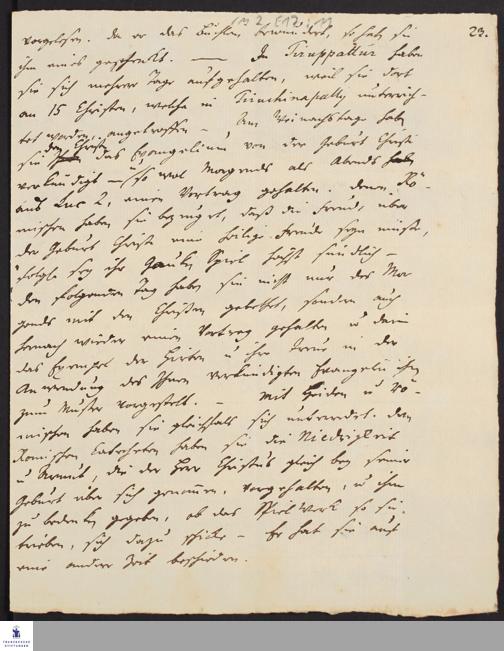 1 M 2 E 12 : 11
23.
vorgelesen. da er das Büchlein bewundert, so hat sie
ihm eines geschenkt. — In Tiruppattur haben
sie sich mehrere Tage aufgehalten, weil sie dort
an 15 Christen, welche in Tirutschinapally unterrich-
tet worden, angetroffen — Am Weinachtstage haben
sie den Christen das Evangelium von der Geburt Christi
verkündigt — so wol Morgends als Abends
aus Luc 2, einen Vortrag gehalten. denen Rö-
mischen haben sie bezeuget, daß die Freude über
der Geburt Christi eine heilige Freude seyn müste,
folgl. sey ihr Gaukel Spiel höchst sündlich —
den folgenden Tag haben sie nicht nur des Mor
gends mit den Christen gebethet, sondern auch
hernach wieder einen Vortrag gehalten u darin
das Exempel der Hirten u ihre Treue in der
Anwendung des Ihnen verkündigten Evangelii ihnen
zum Muster vorgestelt. — Mit Heiden u Rö-
mischen haben sie gleichfals sich unterredet. den
Römischen Catecheten haben sie die Niedrigkeit
u Armuth, die der Herr Christus gleich bey seiner
Geburt über sich genommen, vorgehalten, u ihm
zu bedenken gegeben, ob das Spielwerk so sie
trieben, sich dazu schicke — Er hat sie auf
eine andere Zeit beschieden.
FRANCKESCHE
STIFTUNGEN